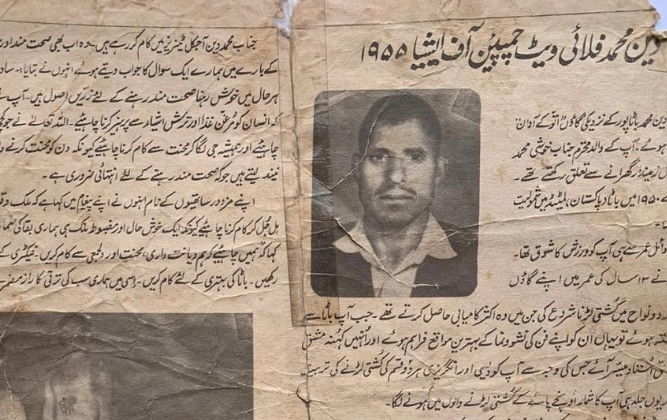 دین محمد فلائی ویٹ چمپئن آف ایشیا ۱۹۵۵
دین محمد باٹا پور کے نزدیکی گاؤں اٹوکے آوان
ہوئے، آپ کے والد محترم جناب خوشی محمد
زمیندار گھرانے سے تعلق رکھتے تھے۔
۱۹۵۰ میں باٹا پاکستان لمیٹڈ میں شمولیت
اوائل عمر سے ہی آپ کو ورزش کا شوق تھا۔
نے ۱۳ سال کی عمر میں اپنے گاؤں
گرد و نواح میں کشتی لڑنا شروع کی جن میں وہ اکثر کامیابی حاصل کرتے تھے۔ جب آپ باٹا سے
ہوئے تو یہاں ان کو اپنے فن کی نشوونما کے بہترین مواقع فراہم ہوئے اور انہیں کہنہ مشق
استاد میسر آئے جس کی وجہ سے آپ کو دیسی اور انگریزی ہر دو قسم کی کشتی لڑنے کی تربیت
یوں جلد ہی آپ کا شمار اونچے پائے کے کشتی لڑنے والوں میں ہونے لگا۔
جناب محمد دین آجکل ٹینریز میں کام کر رہے ہیں۔ وہ اب بھی صحت مند اور
کے بارے میں ہمارے ایک سوال کا جواب دیتے ہوئے انہوں نے بتایا۔ سادہ
ہر حال میں خوش رہنا صحت مند رہنے کے لئے زریں اصول ہیں۔ آپ نے
کہ انسان کو مرغن غذا اور ترش اشیاء سے پرہیز کرنا چاہیئے۔ اللہ تعالے نے جو کچھ
چاہیئے اور ہمیشہ جی لگا کر محنت سے کام کرنا چاہیئے کیونکہ دن کو محنت کرنے والے
نیند لیتے ہیں جو کہ صحت مند رہنے کے لئے انتہائی ضروری ہے۔
اپنے مزدور ساتھیوں کے نام انہوں نے اپنے پیغام میں کہا ہے کہ ملک و قوم
مل جل کر کام کرنا چاہیئے کیونکہ ایک خوش حال اور مضبوط ملک ہی ہماری بقا کی ضمانت
کہا کہ ہمیں چاہیئے کہ ہم دیانت داری، محنت اور دلجمعی سے کام کریں۔ فیکٹری کے
رکھیں۔ باٹا کی بہتری کے لئے کام کریں۔ اسی میں ہماری سب کی ترقی کا راز مضمر